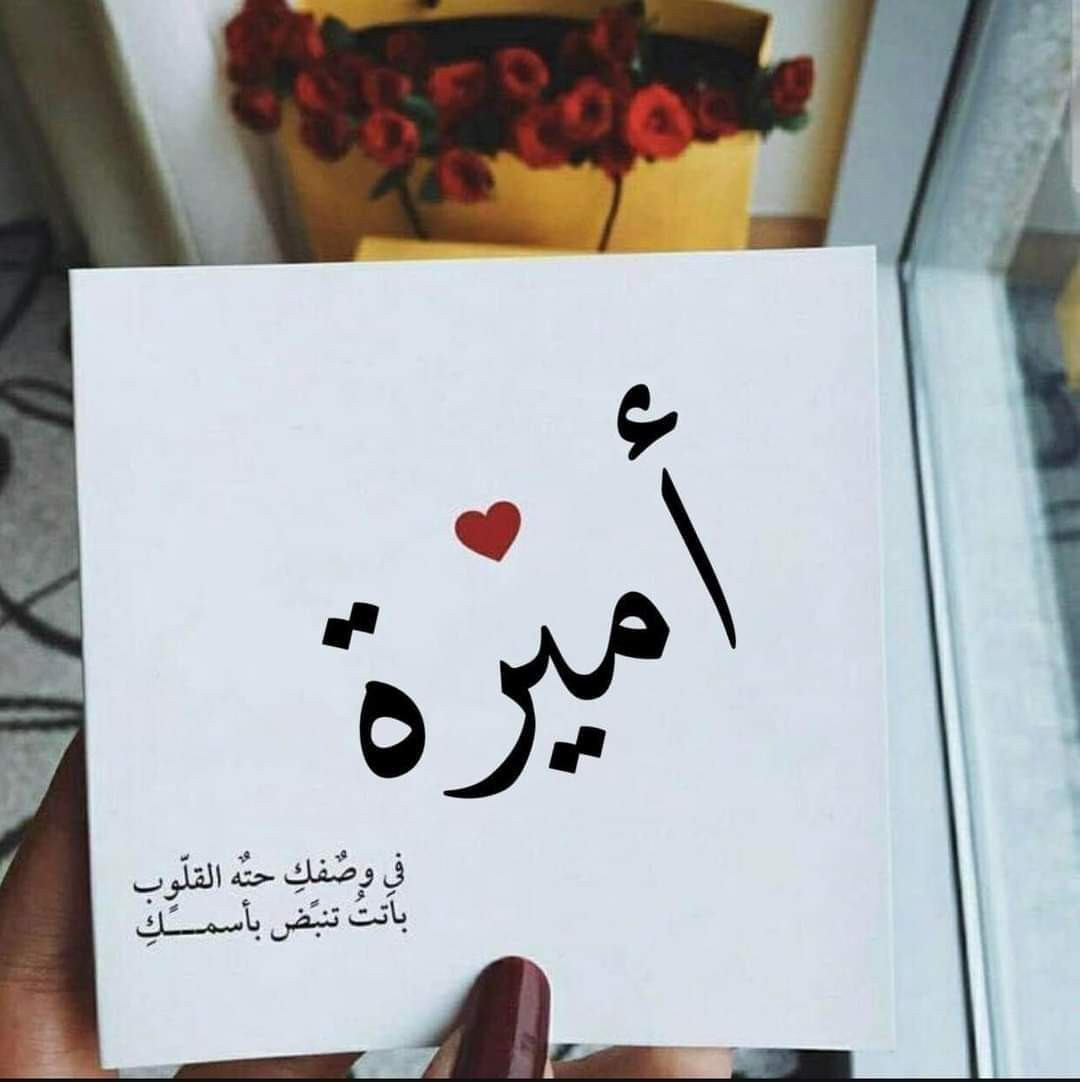 أميرة
في وصٌفكِ حتهٌ القلّوب
باتتُ تنبًض بأسمــــكًِ